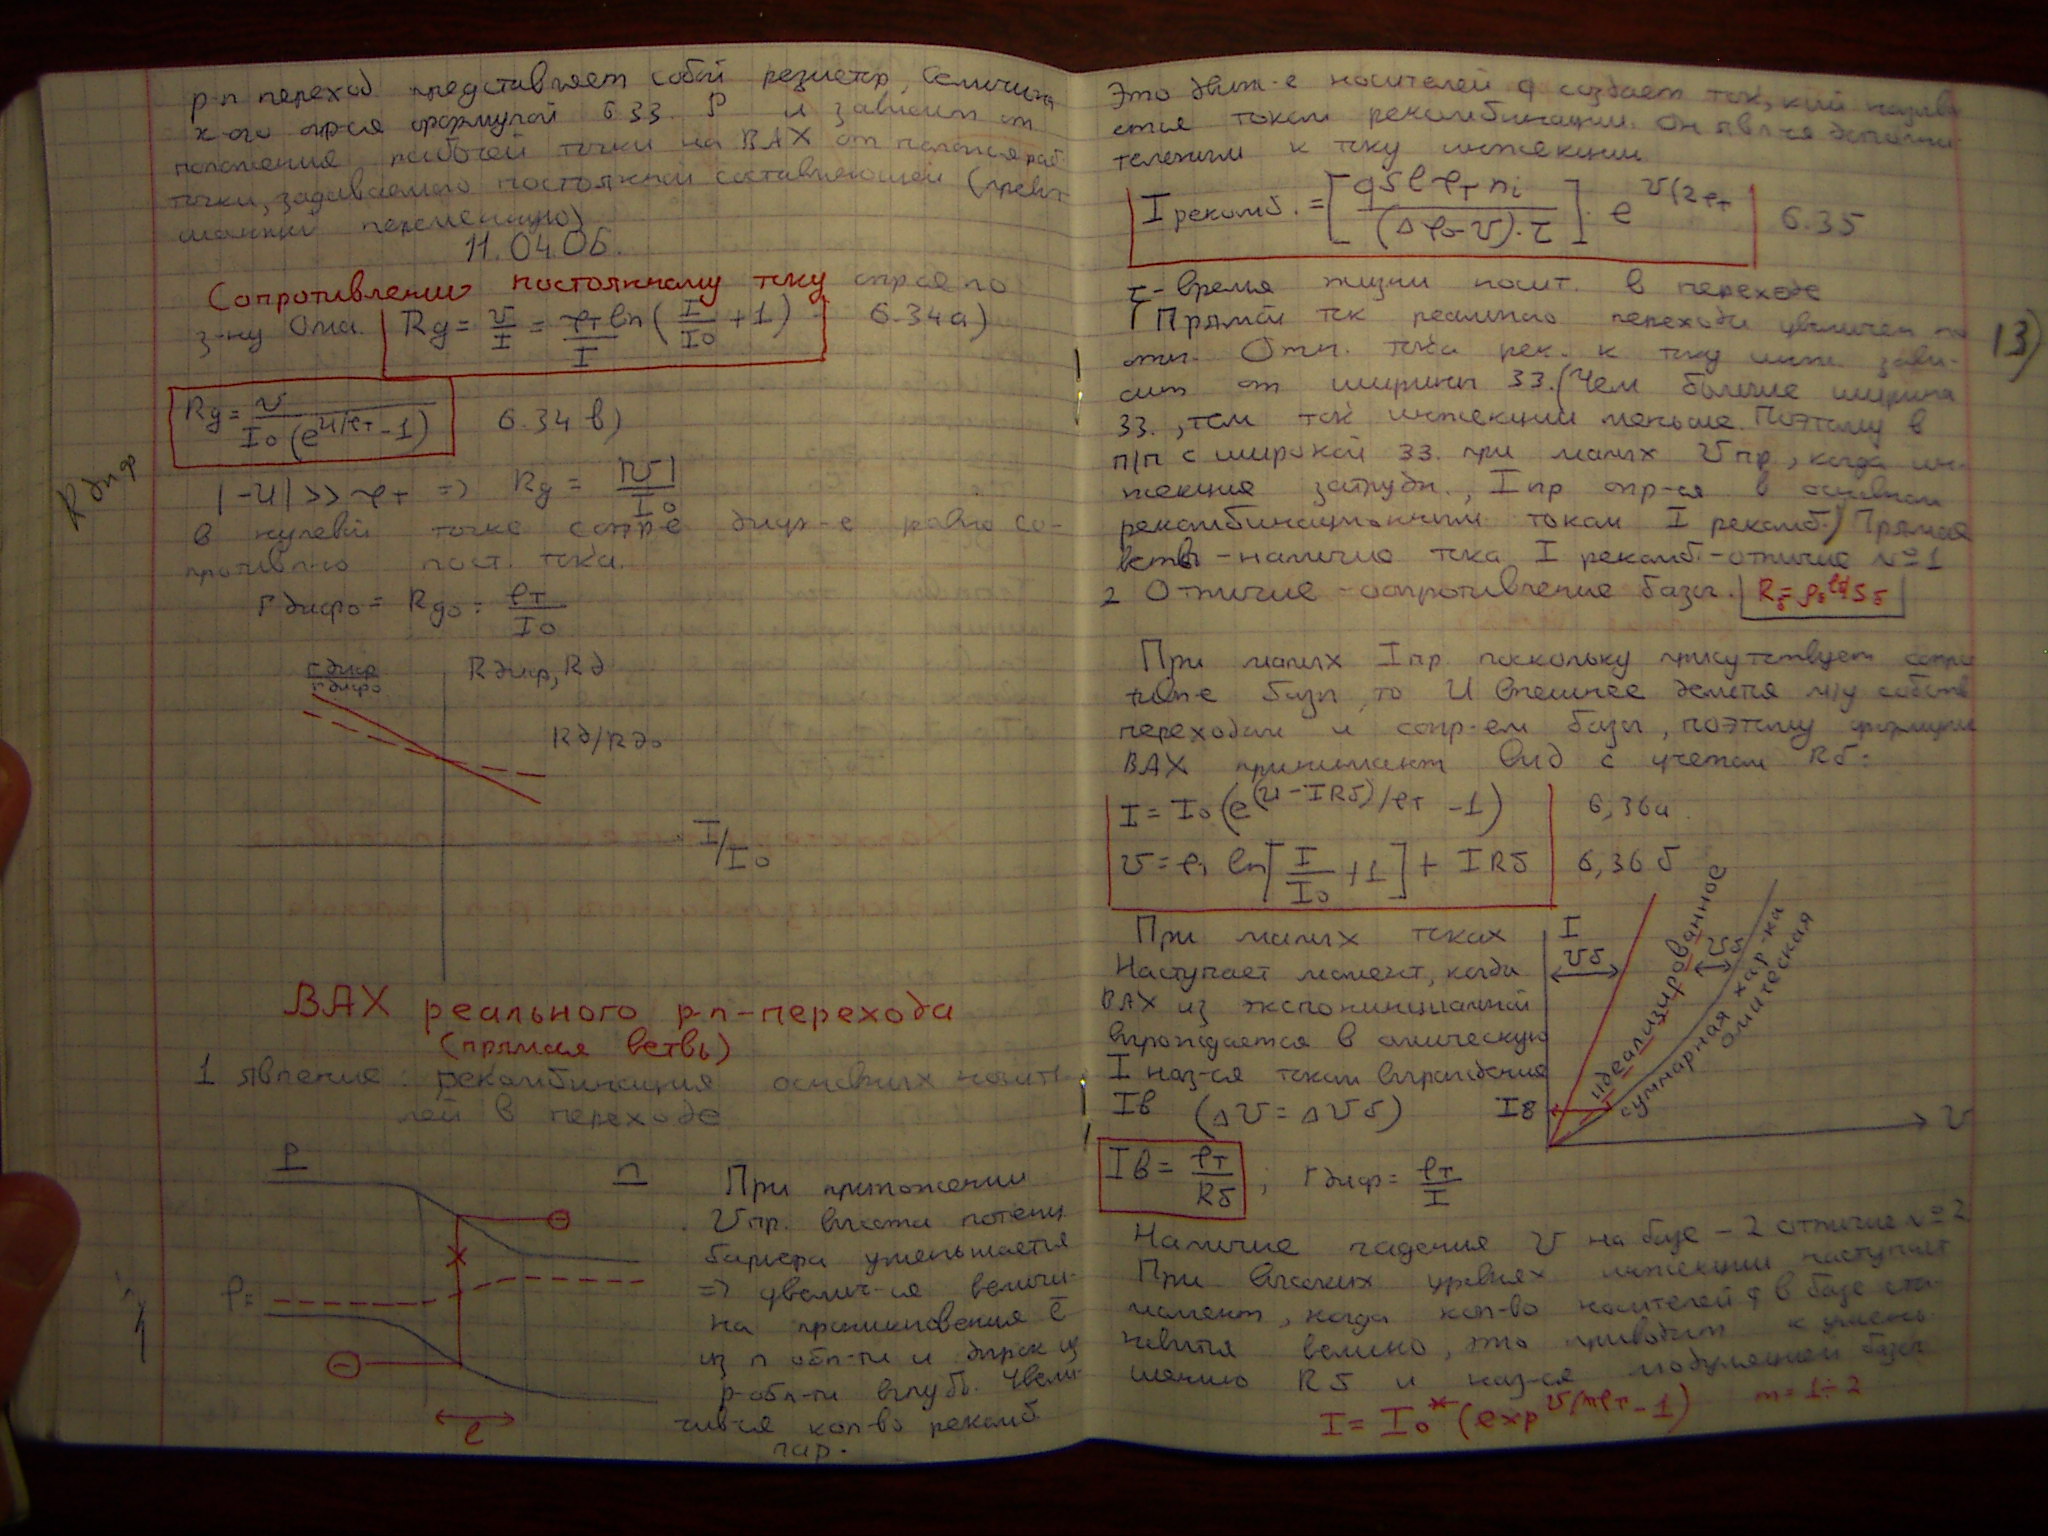 р-п переход представляет собой резистор, величина
к-ого опр-ся формулой 6 33. и зависит от
положения рабочей точки на ВАХ от полож-я раб.
точки, задаваемого постоянной составляющей
переменную)
11.04.06.
Сопротивление постоянному току опр-ся по
з-ну Ома. Rд = U/I = φт/I ln(I/I0 + 1) 6.34а)
Rд = U/(I0(e^U/φт - 1)) 6.34 в)
R диф
|-U| >> φт => Rд = |U|/I0
В нулевой точке сопр-е диф-е равно со-
противл-ю пост. тока.
r диф0 = Rд0 = φт/I0
r диф/r диф0
R диф, Rд
Rд/Rд0
I/I0
ВАХ реального р-п-перехода
(прямая ветвь)
1 явление: рекомбинация основных носите-
лей в переходе
P n
При приложении
Uпр. высота потенц.
барьера уменьшается
=> увелич-ся величи-
на проникновения ē
из n обл-ти и дырок из
р-обл-ти вглубь. Увели-
чив-ся кол-во рекомб
пар.
l
Это движ-е носителей q создает ток, к-ый назыв
ается током рекомбинации. Он явл-ся дополни-
тельным к току инжекции
I рекомб. = [qSlφт ni/((Δφ0-U)·τ)]·e^U/2φт 6.35
τ - время жизни носит. в переходе
(Прямой ток реального перехода увеличен по
отн. Отн. тока рек. к току инж. зави-
сит от ширины ЗЗ. (Чем больше ширина
ЗЗ., тем ток инжекции меньше. Поэтому в
п/п с широкой ЗЗ. при малых Uпр, когда ин-
жекция затрудн., Iпр опр-ся в основном
рекомбинационным током I рекомб.) Прямая
ветвь - наличие тока I рекомб. - отличие №1
13)
2 Отличие - сопротивление базы. Rб = ρб lб/Sб
При малых Iпр. поскольку присутствует сопро
тивл-е базы, то U внешнее делится м/у собств
переходом и сопр-ем базы, поэтому формулы
ВАХ принимают вид с учетом Rб:
I = I0(e^(U-IRб)/φт - 1) 6,36а
U = φт ln[I/I0 + 1] + IRб 6,36 б
При малых токах
Наступает момент, когда
ВАХ из экспонинциальной
вырождается в омическую
I наз-ся током вырождения
Iв (ΔU = ΔUб)
I
Uб
идеализированное
Uб
суммарная хар-ка
омическая
Iв
U
Iв = φт/Rб ; r диф = φт/I
Наличие падения U на базе - 2 отличие №2
При высоких уровнях инжекции наступает
момент, когда кол-во носителей q в базе ста-
новится велико, это приводит к умень
шению Rб и наз-ся модуляцией базы
I = I0*(exp^U/mφт - 1) m = 1÷2